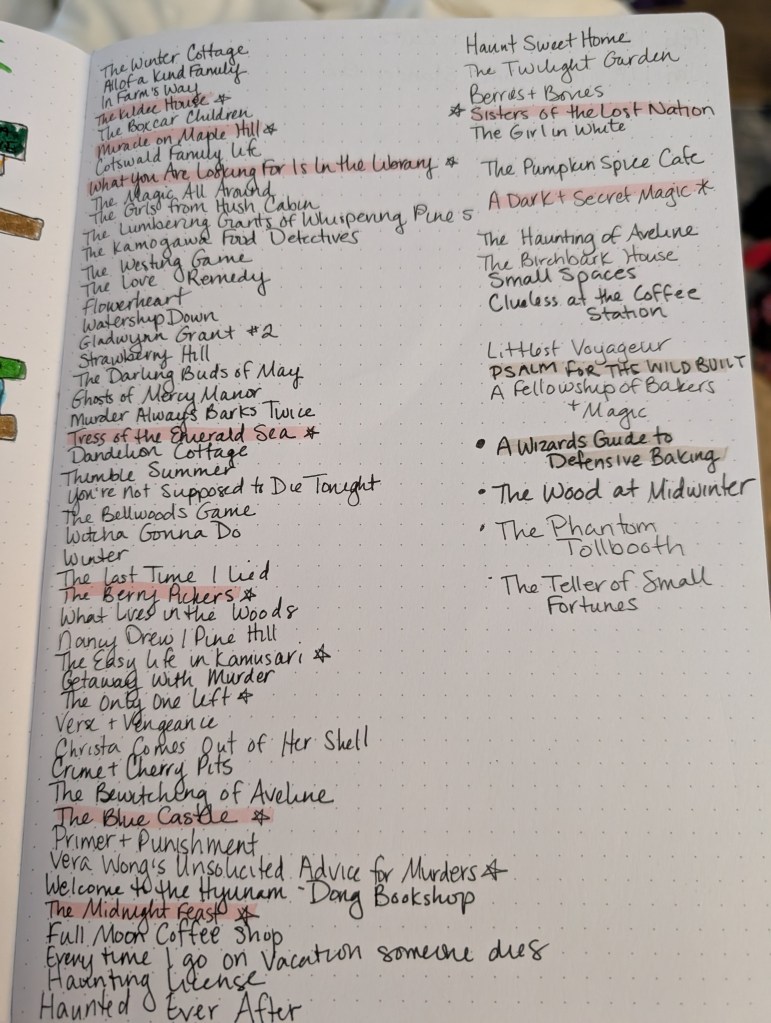 The Winter Cottage
All of a Kind Family
In Farm's Way
The Kildee House ☆
The Boxcar Children
Miracle on Maple Hill ☆
Cotswald Family Life
What You Are Looking For Is In the Library ☆
The Magic All Around
The Girls from Hush Cabin
The Lumbering Giants of Whispering Pines
The Kamogawa Food Detectives
The Westing Game
The Love Remedy
Flowerheart
Watership Down
Gladwynn Grant #2
Strawberry Hill
The Darling Buds of May
Ghosts of Mercy Manor
Murder Always Barks Twice
Tress of the Emerald Sea ☆
Dandelion Cottage
Thimble Summer
You're Not Supposed to Die Tonight
The Bellwoods Game
Wotcha Gonna Do
Winter
The Last Time I Lied
The Berry Pickers ☆
What Lives in the Woods
Nancy Drew / Pine Hill
The Easy Life in Kamusari ☆
Getaway with Murder
The Only One Left ☆
Verse + Vengeance
Christa Comes Out of Her Shell
Crime + Cherry Pits
The Bewitching of Aveline
The Blue Castle ☆
Primer + Punishment
Vera Wong's Unsolicited Advice for Murders ☆
Welcome to the Hyunam-Dong Bookshop
The Midnight Feast ☆
Full Moon Coffee Shop
Every time I go on Vacation someone dies
Haunting License
Haunted Ever After
Haunt Sweet Home
The Twilight Garden
Berries + Bones
☆ Sisters of the Lost Nation
The Girl in White
The Pumpkin Spice Cafe
A Dark + Secret Magic ☆
The Haunting of Aveline
The Birchbark House
Small Spaces
Clueless at the Coffee
Station
Littlest Voyageur
PSALM FOR THE WILD BUILT
A Fellowship of Bakers
+ Magic
• A Wizards Guide to
Defensive Baking
• The Wood at Midwinter
• The Phantom
Tollbooth
• The Teller of Small
Fortunes